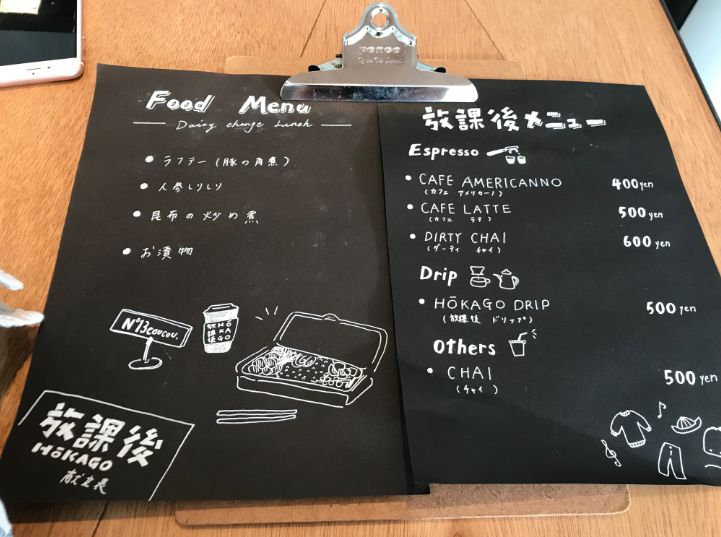 Food Menu
Dairy change Lunch
ラフテー(豚の角煮)
人参しりしり
昆布の炒め煮
お漬物
Nº13coucou.
放課後
HŌKAGO
放課後
HŌKAGO
放課後メニュー
Espresso
CAFE AMERICANNO 400yen
(カフェ アメリカーノ)
CAFE LATTE 500yen
(カフェ ラテ)
DIRTY CHAI 600yen
(ダーティ チャイ)
Drip
HŌKAGO DRIP 500yen
(放課後 ドリップ)
Others
CHAI 500yen
(チャイ)